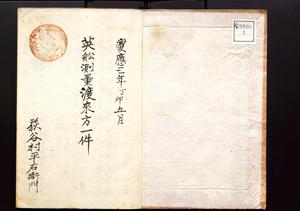 慶應三年丁卯五月
英舩測量渡來方一件
荻谷村平右衛門